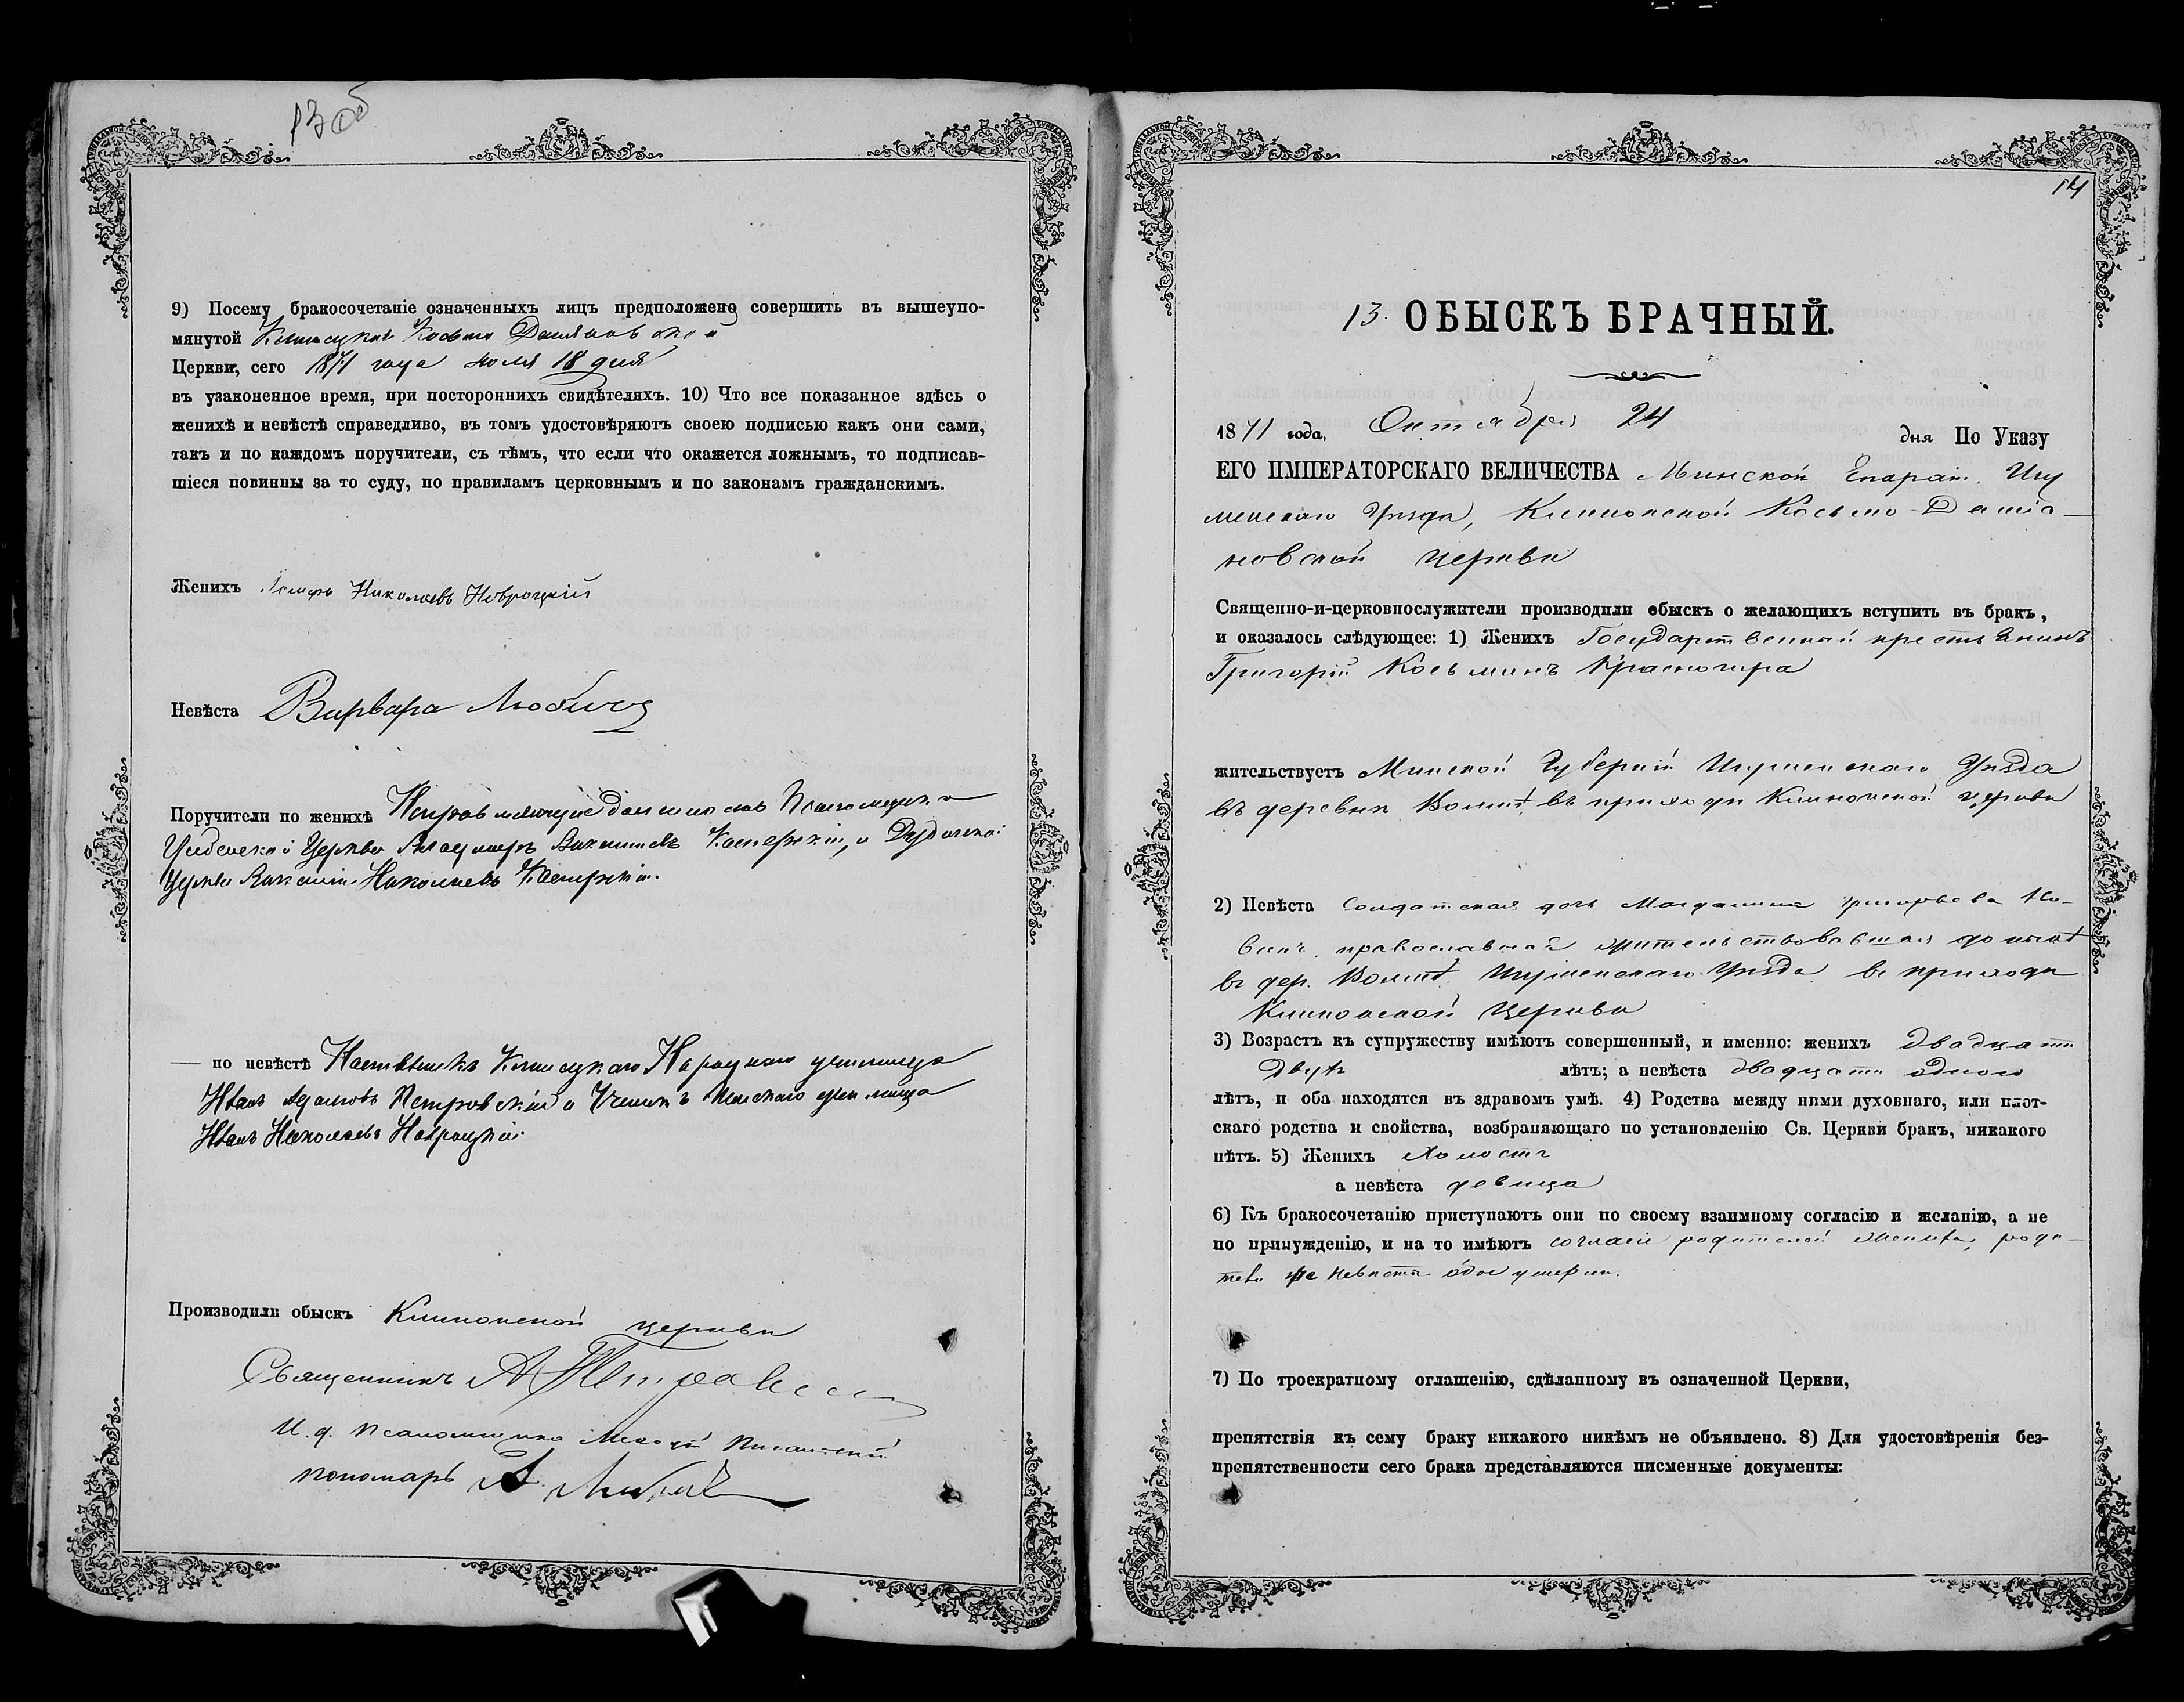 13 об
9) Посему бракосочетаніе означенныхъ лицъ предположено совершить въ вышеупо-
мянутой Косьмо Даміановской
Церкви, сего 1871 года Іюля 18 дня
въ узаконенное время, при постороннихъ свидѣтеляхъ. 10) Что все показанное здѣсь о
женихѣ и невѣстѣ справедливо, въ томъ удостовѣряютъ своею подписью какъ они сами,
такъ и по каждомъ поручители, съ тѣмъ, что если что окажется ложнымъ, то подписав-
шіеся повинны за то суду, по правиламъ церковнымъ и по законамъ гражданскимъ.
Женихъ Николаевъ Новроцкій
Невѣста Варвара Любичъ
Поручители по женихѣ
Церкви и
Церкви Николаевъ
— по невѣстѣ Народнаго училища
Иванъ Адамовъ Петровскій и училища
Иванъ Николаевъ Навроцкій
Производили обыскъ Клинокской церкви
Священникъ А Петровскій
И. д. псаломщика
пономарь А. Любичъ
14
13. ОБЫСКЪ БРАЧНЫЙ.
1871 года, Октября 24 дня По Указу
ЕГО ИМПЕРАТОРСКАГО ВЕЛИЧЕСТВА Минской Епархіи, Игу
менскаго уѣзда, Клинокской Косьмо-Даміа-
новской церкви
Священно-и-церковнослужители производили обыскъ о желающихъ вступить въ бракъ,
и оказалось слѣдующее: 1) Женихъ Государственный крестьянинъ
Григорій Косьминъ Красногира
жительствуетъ Минской Губерніи Игуменскаго Уѣзда
въ деревни въ приходи Клинокской церкви
2) Невѣста солдатская дочь Магдалина Григорьева
православная жительствовавшая до нынѣ
въ дер. Игуменскаго Уѣзда въ приходи
Клинокской церкви
3) Возрастъ къ супружеству имѣютъ совершенный, и именно: женихъ двадцати
двухъ лѣтъ; а невѣста двадцати одного
лѣтъ, и оба находятся въ здравомъ умѣ. 4) Родства между ними духовнаго, или плот-
скаго родства и свойства, возбраняющаго по установленію Св. Церкви бракъ, никакого
нѣтъ. 5) Женихъ холостъ
а невѣста девица
6) Къ бракосочетанію приступаютъ они по своему взаимному согласію и желанію, а не
по принужденію, и на то имѣютъ согласіе родителей жениха, роди-
тели же невѣсты обое умерли.
7) По троекратному оглашенію, сдѣланному въ означенной Церкви,
препятствія къ сему браку никакого никѣмъ не объявлено. 8) Для удостовѣренія без-
препятственности сего брака представляются писменные документы: